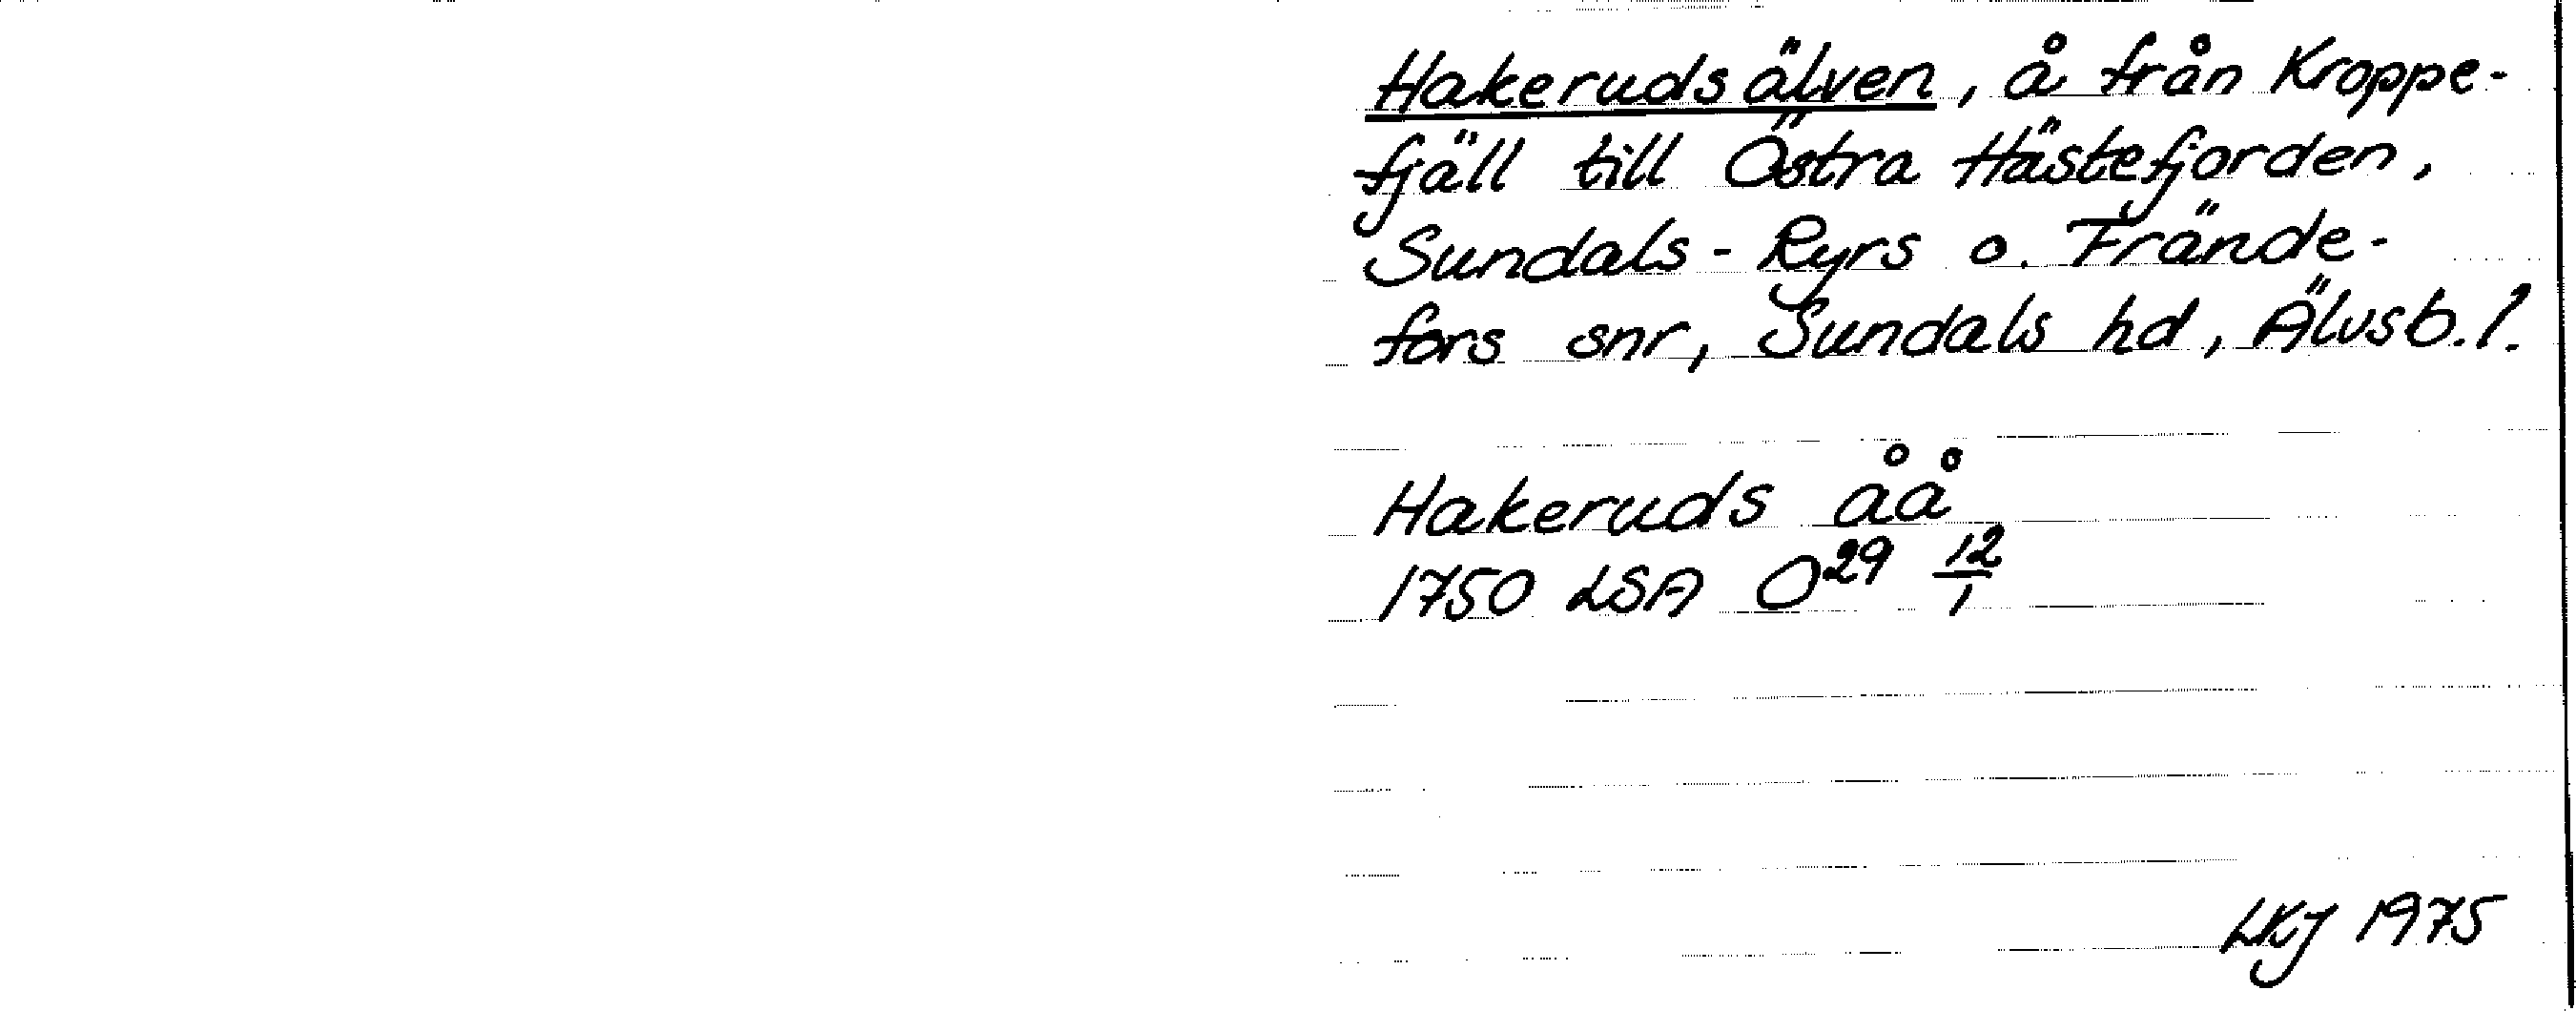 Hakerudsälven, å från Kroppe-
fjäll till Östra Hästefjorden,
Sundals-Ryrs o. Frände-
fors snr, Sundals hd, Älvsb. l.
Hakeruds åå
1750 LSA O29 12/1
LKJ 1975